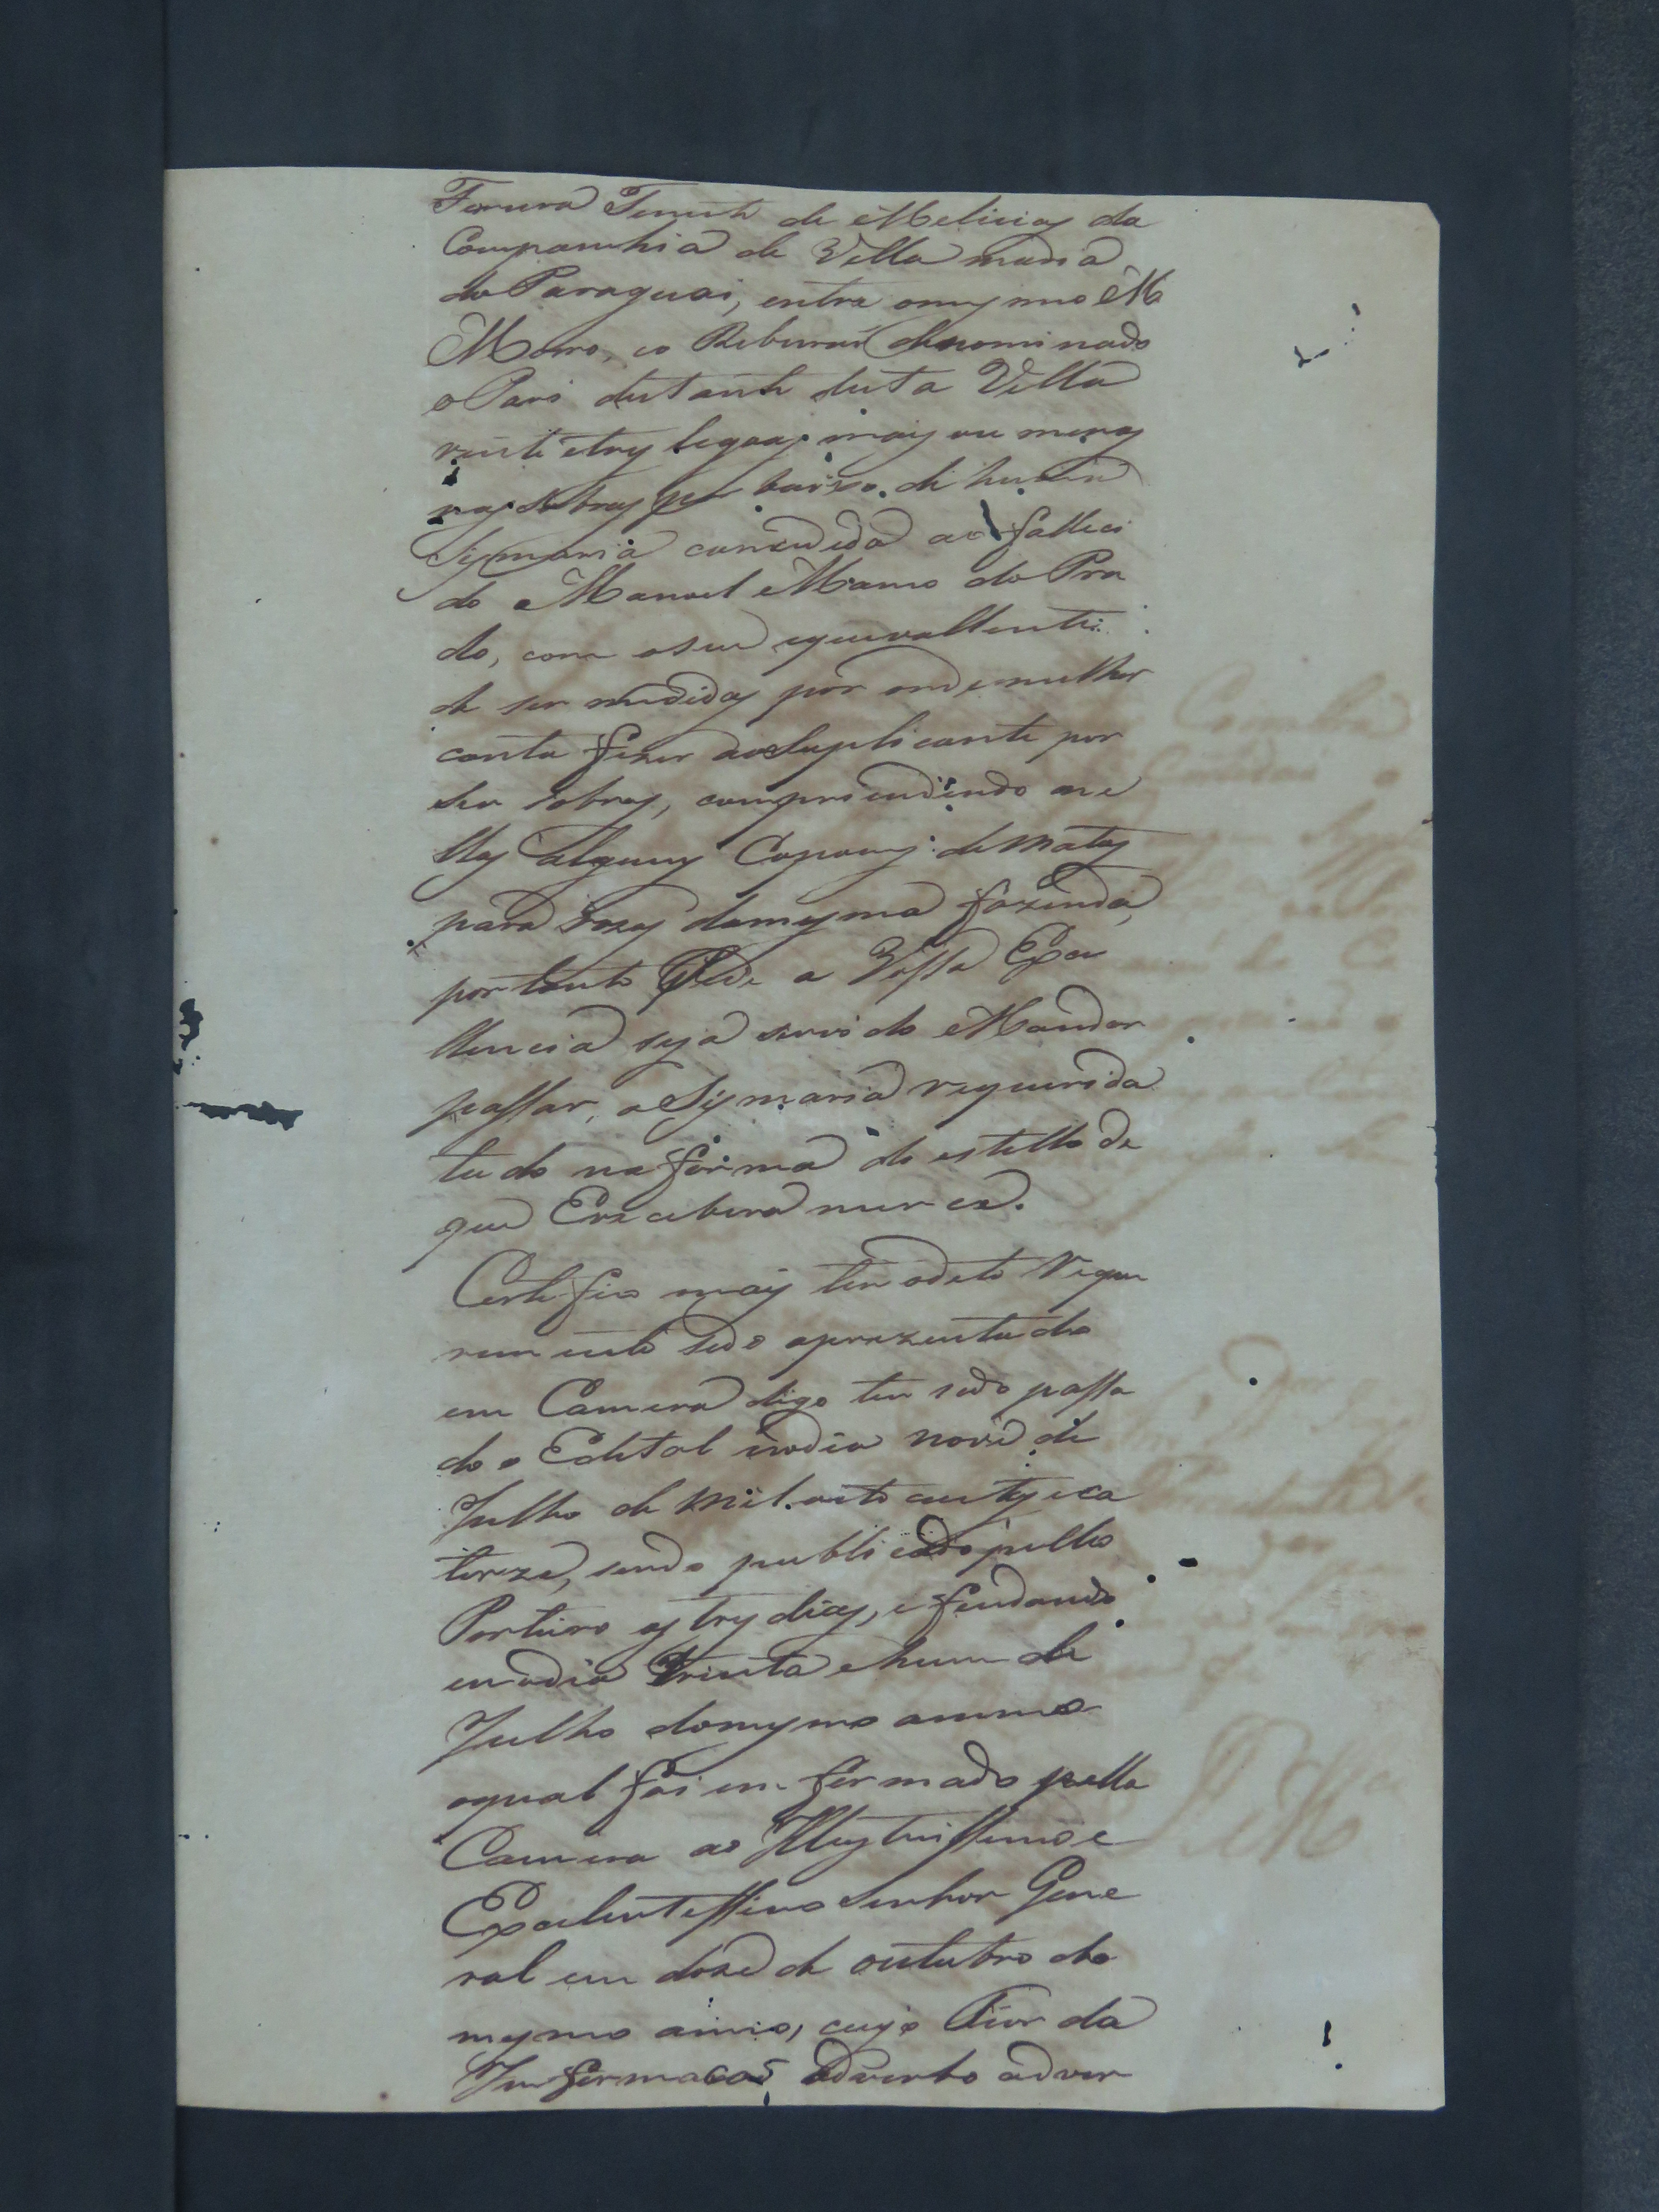 Tenente de Melicias da
Companhia de Villa maria
do Paraguai, entre omesmo M
Morro, eo Reberaõ denominado
o Pari destante desta Villa
vinte etres legoas mais ou menos
nas Sobras por baixo de huma
Sismaria concedida ao falleci
do Manoel Mano do Pra
do, com oseu equevallente
de ser medidas por onde melhor
conta fizer ao Suplicante por
ser sobras, compriendendo ne
llas alguns Capoins de matos
para Rosas damesma fazenda,
por tanto Pede a Vossa Exce
llencia seja servido Mandar
passar, a Sismaria requerida
tudo na forma do estillo de
que Errecebera merce.
Certefico mais ter odito reque
remento sido aprezentado
em Camera digo ter sido passa
do o Edital nodia nove de
Julho de mil oito centos e ca
torze, sendo publicado pello
Porteiro os tres dias, e findando
emodia trinta ehum de
Julho domesmo anno
oqual foi em formado pella
Camera ao Illustrissimo e
Excelentessimo Senhor Gene
ral em doze de outubro do
mesmo anno, cujo Teor da
Informacaõ edverbo adver